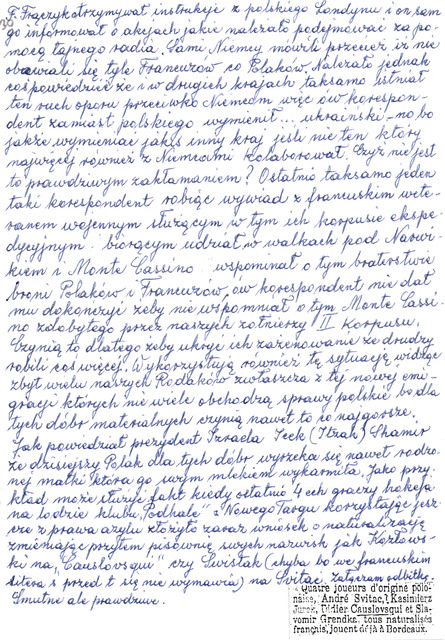 T. Frączyk otrzymywał instrukcje z polskiego Londynu i on sam
go informował o akcjach jakie należało podejmować za po-
mocą tajnego radia. Sami Niemcy mówili przecież iż nie
obawiali się tyle Francuzów co Polaków. Należało jednak
coś powiedzieć że i w drugich krajach taksamo istniał
ten ruch oporu przeciwko Niemcom więc ów korespon-
dent zamiast polskiego wymienił... ukraiński - no bo
jakże wymieniać jakiś inny kraj jeśli nie ten który
najwięcej również z Niemcami kolaborował. Czyż nie jest
to prawdziwym zakłamaniem? Ostatnio taksamo jeden
taki korespondent robiąc wywiad z francuskim wete-
ranem wojennym służącym w tym ich korpusie ekspe-
dycyjnym - biorącym udział w walkach pod Narwi-
kiem i Monte Cassino wspominał o tym braterstwie
broni Polaków i Francuzów, ów korespondent nie dał
mu dokończyć żeby nie wspomniał o tym Monte Cassi
no zdobytego przez naszych żołnierzy II Korpusu.
Czynią to dlatego żeby ukryć ich zażenowanie że drudzy
robili coś więcej. Wykorzystują również tę sytuację widząc
zbyt wielu naszych Rodaków zwłaszcza z tej nowej emi-
gracji których nie wiele obchodzą sprawy polskie bo dla
tych dóbr materialnych czynią nawet to co najgorsze.
Jak powiedział prezydent Izraela Icek (Itzak) Shamir
że dzisiejszy Polak dla tych dóbr wyrzeka się nawet rodzo-
nej matki która go swym mlekiem wykarmiła. Jako przy-
kład może służyć fakt kiedy ostatnio 4 ech graczy hokeja
na lodzie klubu "Podhale" z Nowego Targu korzystając jesz-
cze z prawa azylu złożyło zaraz wniosek o naturalizację
zmieniając przytem pisownię swych nazwisk jak Kozłows-
ki na "Causlovsqui" czy Swistak (chyba bo we francuskim
litera s przed t się nie wymawia) na Svitac. Załączam odbitkę.
Smutne ale prawdziwe.
Quatre joueurs d'origine polo-
naise, André Svitac, Kasimierz
Jurek, Didier Causlovsqui et Sla-
vomir Grendka, tous naturalisés
français, jouent déjà à Bordeaux.